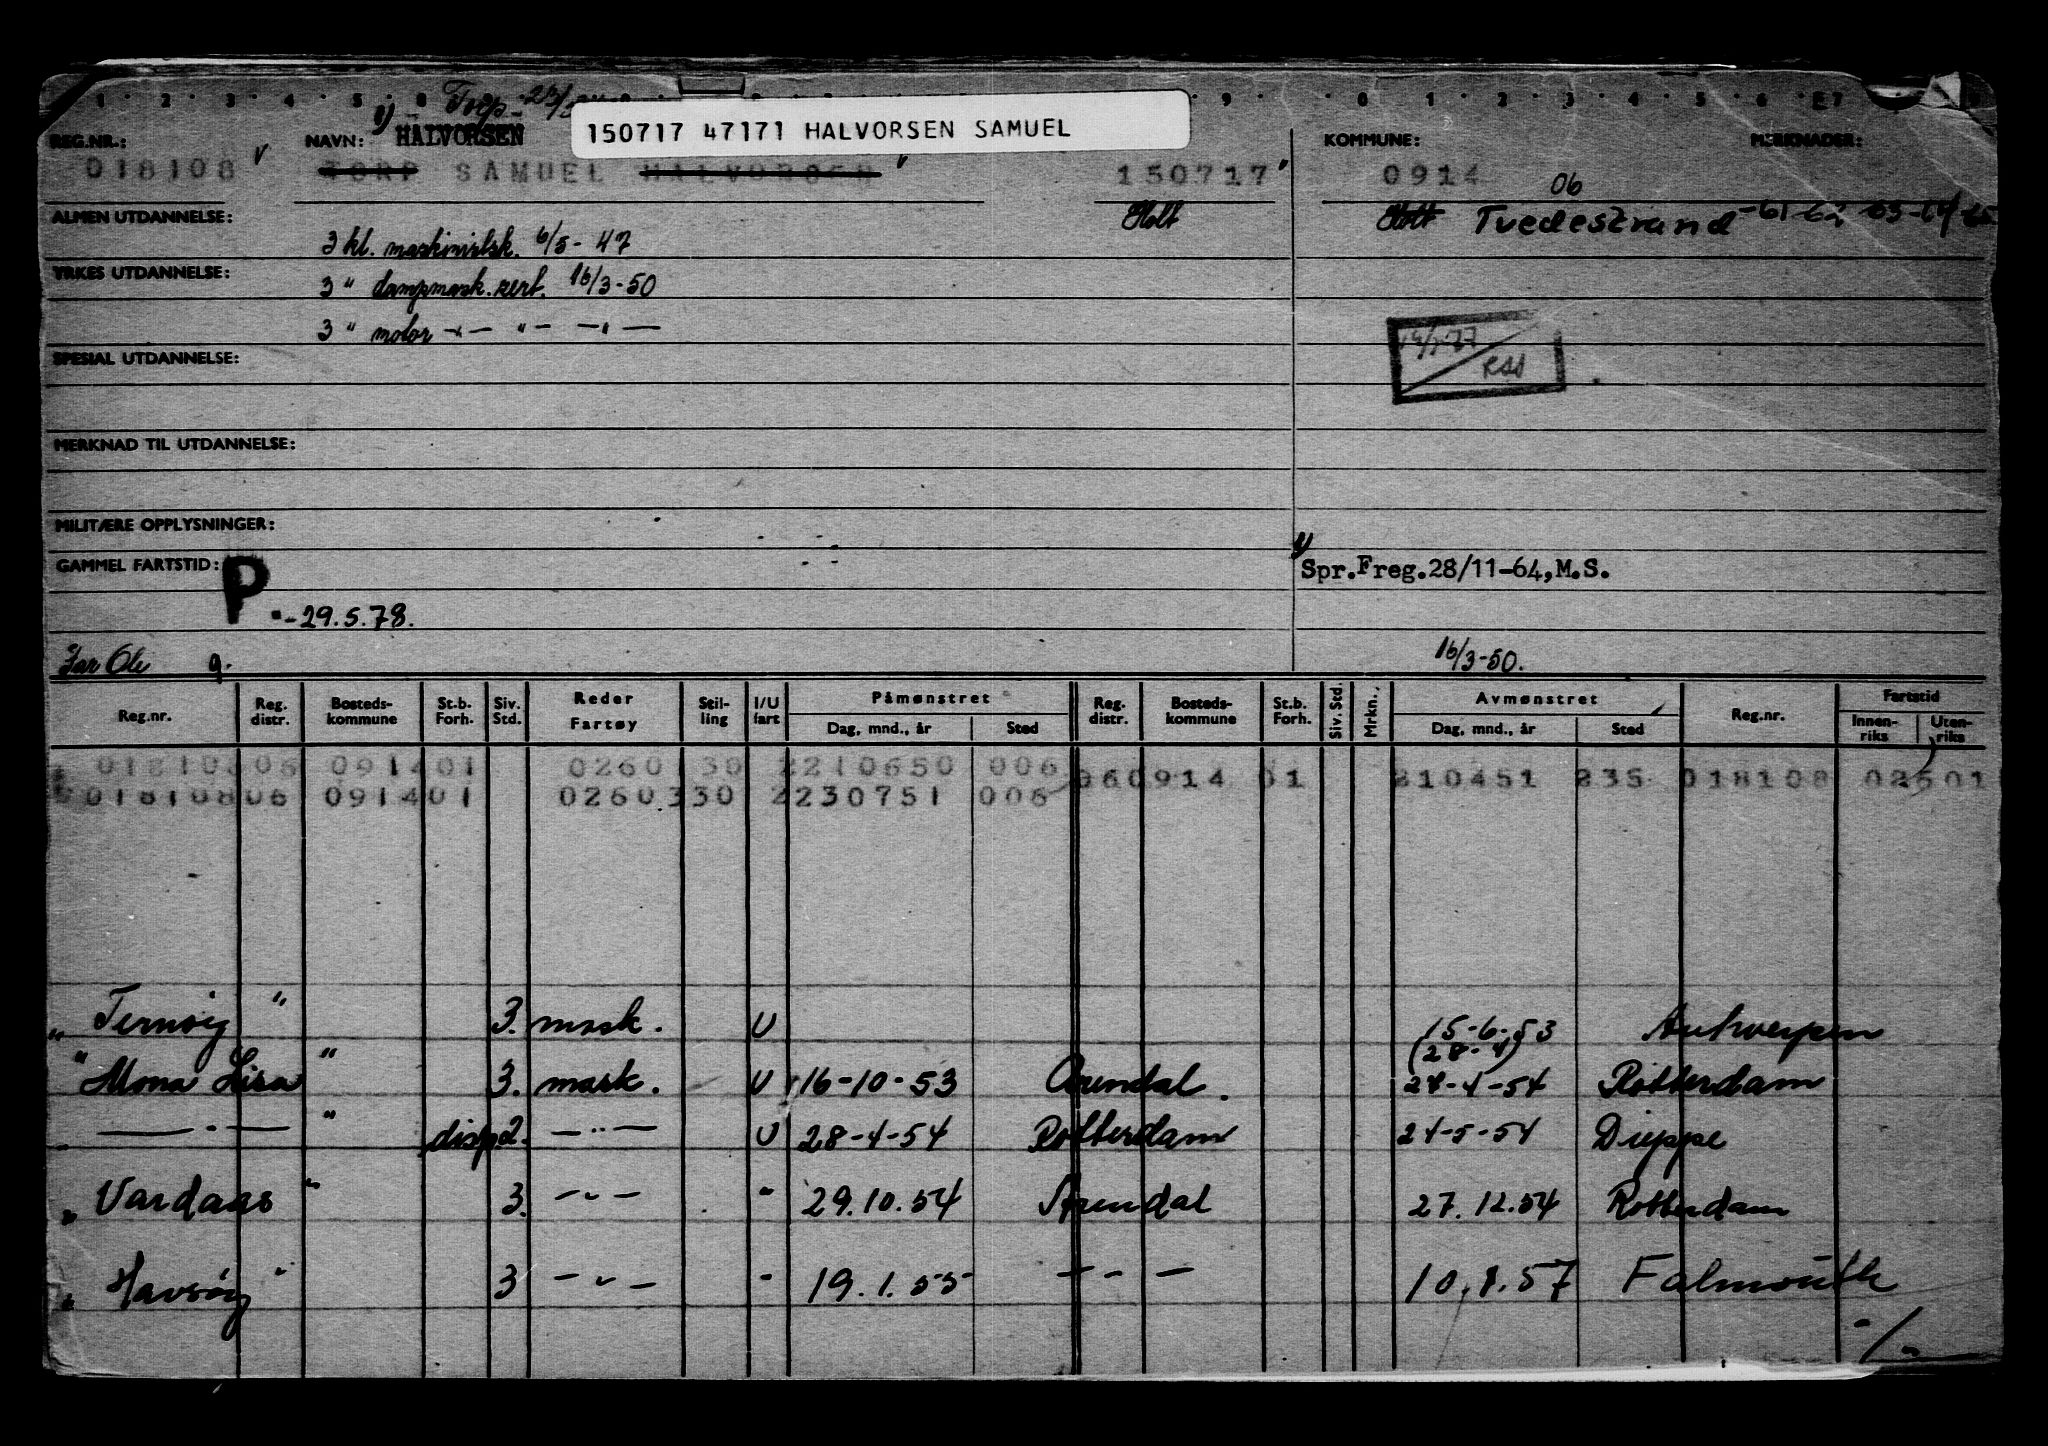 Torp
150717 47171 HALVORSEN SAMUEL
REG.NR.: NAVN: HALVORSEN KOMMUNE: MERKNADER:
018108 TORP SAMUEL HALVORSEN 150717 0914
06
ALMEN UTDANNELSE: Holt Holt Tvedestrand -61-62 63-64/65
3 kl. maskinistsk. 6/5-47
YRKES UTDANNELSE:
3 " dampmask.sert. 16/3-50
3 " motor -"- "- -"-
SPESIAL UTDANNELSE:
RSS
MERKNAD TIL UTDANNELSE:
MILITÆRE OPPLYSNINGER:
GAMMEL FARTSTID: P Spr.Freg.28/11-64,M.S.
-29.5.78.
Far Ole 9. 16/3-50.
Reg.nr. Reg. distr. Bosteds-kommune St.b. Forh. Siv. Std. Reder Fartøy Stil-ling I/U fart Påmønstret Dag, mnd., år Sted Reg. distr. Bosteds-kommune St.b. Forh. Siv. Std. Mrkn. Avmønstret Dag, mnd., år Sted Reg.nr. Fartstid Innen-riks Uten-riks
01810806 091401 0260330 2210650 006 060914 01 210451 235 018108 02501
01810806 091401 0260330 2230751 006
" Ternøy " 3. mask. U 15-6-53 Antwerpen
(28-4)
" Mona Lisa " 3. mask. U 16-10-53 Arendal. 24-4-54 Rotterdam
—"— " disp 2. —"— U 28-4-54 Rotterdam 24-5-54 Dieppe
" Vardaas " 3. -"- " 29.10.54 Arendal 27.12.54 Rotterdam
" Havsøy " 3 -"- " 19.1.55 -"- 10.1.57 Falmouth
-/-